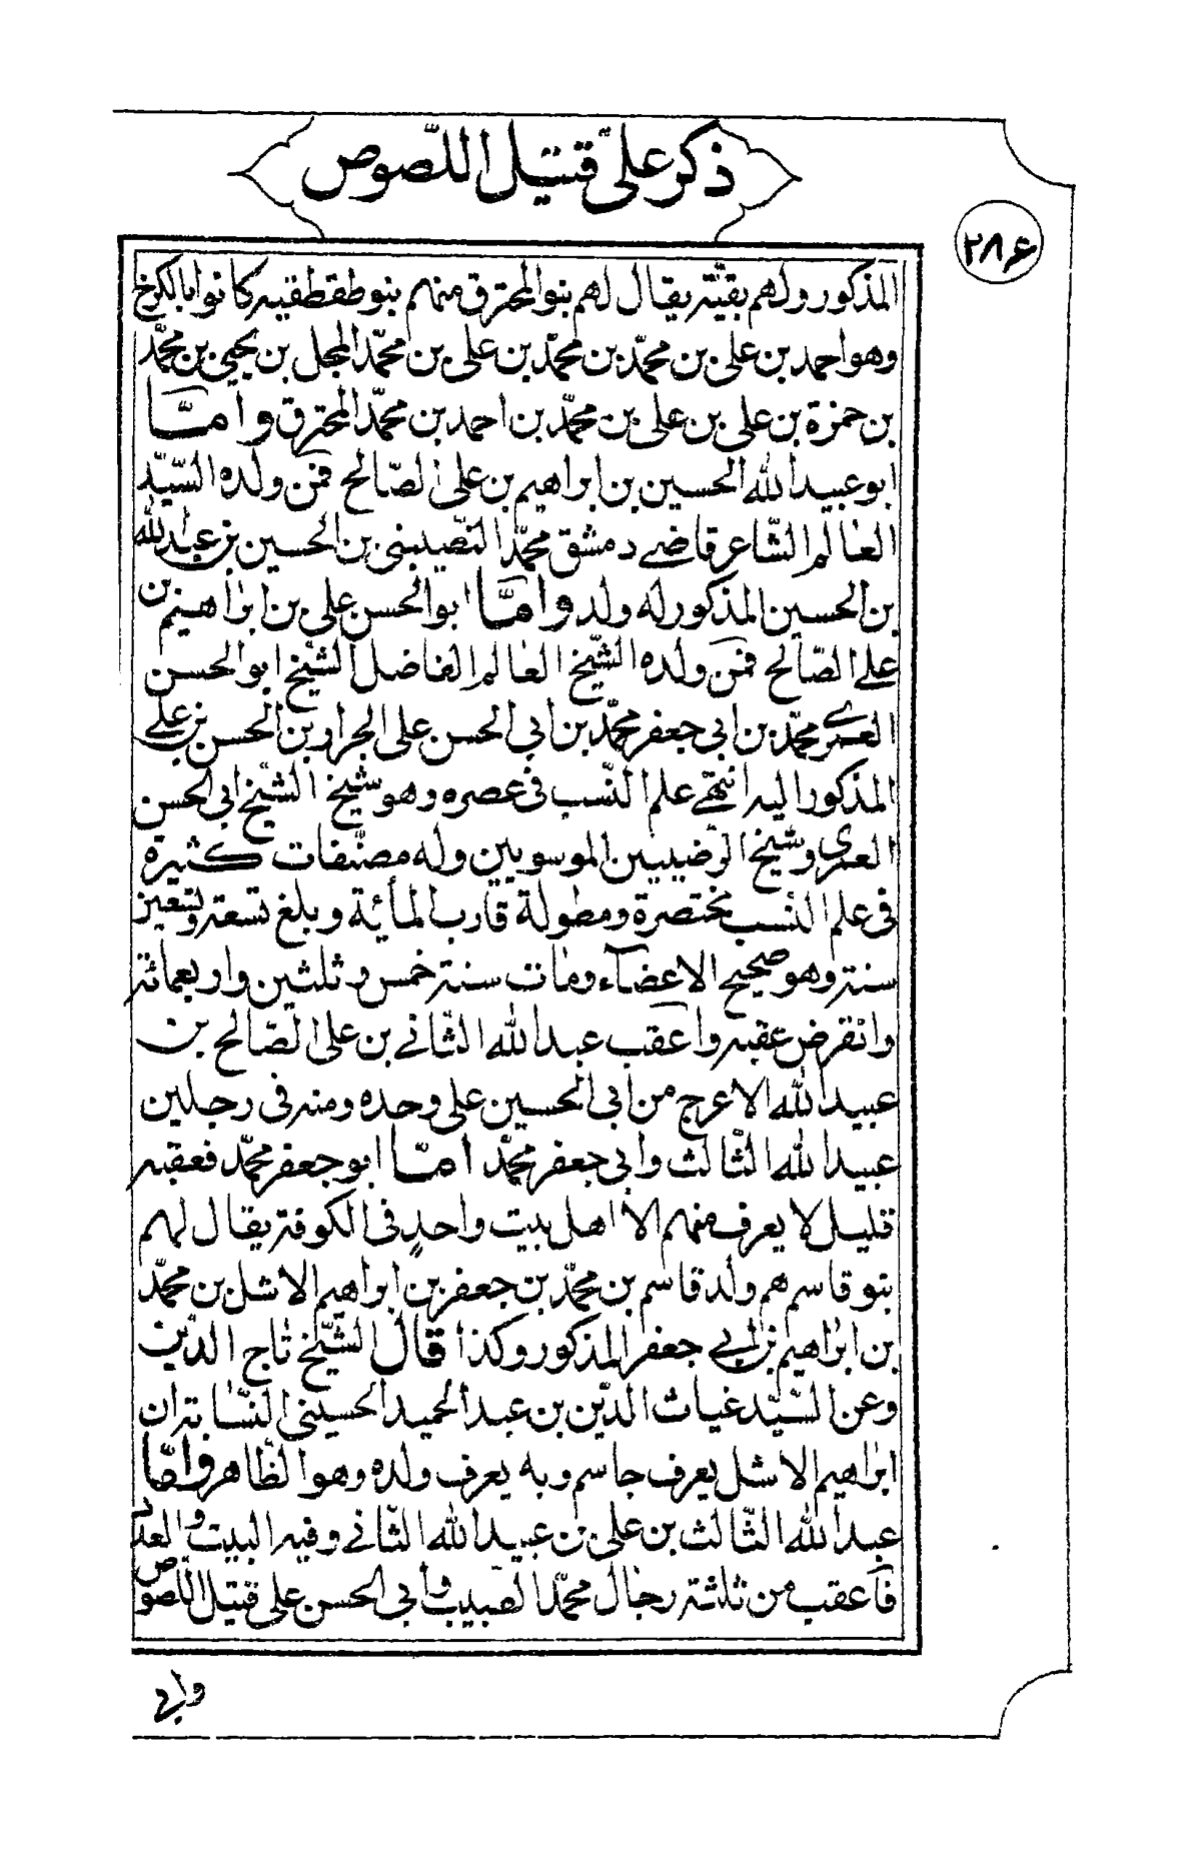 ذكر علىّ قتيل اللّصوص
٢٨۶
المذكور ولهم بقيّة يقال لهم بنو المحترق منهم بنو طقطقيه كانوا بالكرخ
وهو احمد بن على بن محمّد بن محمّد بن على بن محمّد المجل بن يحيى بن محمّد
بن حمزة بن على بن على بن محمّد بن احمد بن محمّد المحترق وامّا
ابو عبيد الله الحسين بن ابراهيم بن على الصّالح فمن ولده السّيّد
العالم الشّاعر قاضے دمشق محمّد النصّيبنى بن الحسين بن عبد الله
بن الحسين المذكور له ولد وامّا ابو الحسن على بن ابراهيم بن
علے الصّالح فمن ولده الشّيخ العالم الفاضل الشّيخ ابو الحسن
العمرے محمّد بن ابى جعفر محمّد بن ابي الحسن على الجرار بن الحسن بن علے
المذكور اليه انتهے علم النّسب فى عصره وهو شيخ الشّيخ ابى الحسن
العمرى وشيخ الرّضيين الموسويين وله مصنّفات كثيرة
فى علم النّسب مختصرة ومطولة قارب المأية وبلغ تسعة وتسعين
سنة وهو صحيح الاعضآء ومات سنة خمس و ثلثين واربعمائة
وانقرض عقبه واعقب عبد الله الثّانے بن على الصّالح بن
عبيد الله الاعرج من ابى الحسين على وحده ومنه فى رجلين
عبيد الله الثّالث وابى جعفر محمّد امّا ابو جعفر محمّد فعقبه
قليل لا يعرف منهم الا اهل بيت واحدٍ فى الكوفة يقال لهم
بنو قاسم هم ولد قاسم بن محمّد بن جعفر بن ابراهيم الاشل بن محمّد
بن ابراهيم بن ابے جعفر المذكور وكذا قال الشّيخ تاج الدّين
وعن السّيّد غياث الدّين بن عبد الحميد الحسينى النّسّابة ان
ابراهيم الاشل يعرف جاسم وبه يعرف ولده وهو الظّاهر وامّا
عبد الله الثّالث بن على بن عبيد الله الثّانے وفيه البيت والعدد
فآعقب من ثلثة رجال محمّد الصّبيب وابى الحسن على قتيل اللّصوص